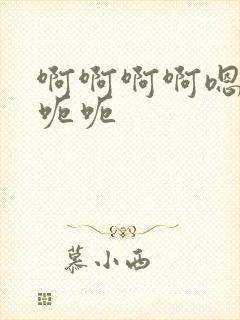 啊啊啊啊嗯
呃呃
慕小西